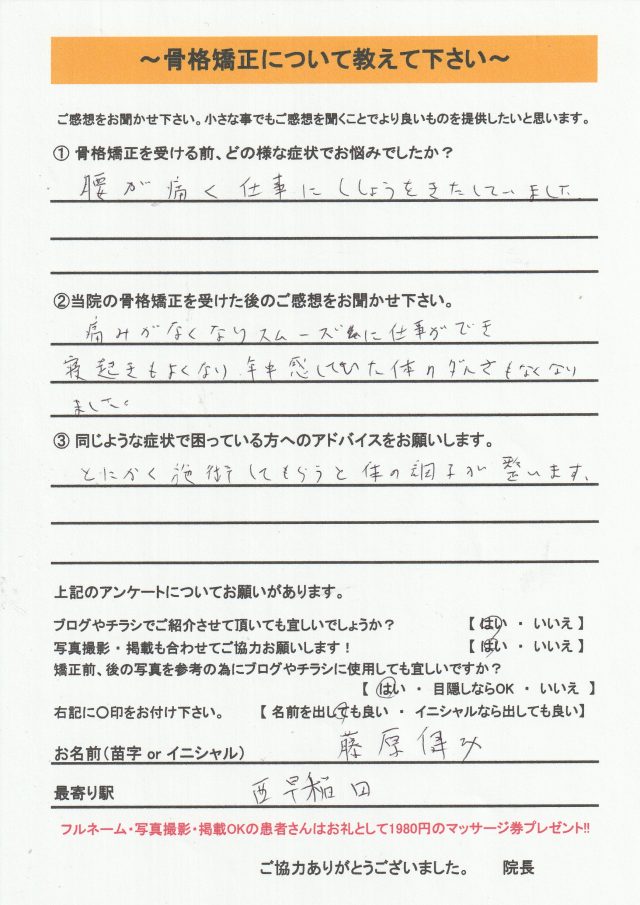 ～骨格矯正について教えて下さい～
ご感想をお聞かせ下さい。小さな事でもご感想を聞くことでより良いものを提供したいと思います。
① 骨格矯正を受ける前、どの様な症状でお悩みでしたか？
腰が痛く仕事にししょうをきたしていました
②当院の骨格矯正を受けた後のご感想をお聞かせ下さい。
痛みがなくなりスムーズに仕事ができ
寝起きもよくなり 年中感じていた体のダルさもなくなり
ました。
③ 同じような症状で困っている方へのアドバイスをお願いします。
とにかく施術してもらうと体の調子が整います。
上記のアンケートについてお願いがあります。
ブログやチラシでご紹介させて頂いても宜しいでしょうか？ 【 はい ・ いいえ 】
写真撮影・掲載も合わせてご協力お願いします！ 【 はい ・ いいえ 】
矯正前、後の写真を参考の為にブログやチラシに使用しても宜しいですか？
【 はい ・ 目隠しならOK ・ いいえ 】
右記に〇印をお付け下さい。 【 名前を出しても良い ・ イニシャルなら出しても良い】
お名前（苗字 or イニシャル） 藤原
最寄り駅 西早稲田
フルネーム・写真撮影・掲載OKの患者さんはお礼として1980円のマッサージ券プレゼント!!
ご協力ありがとうございました。 院長